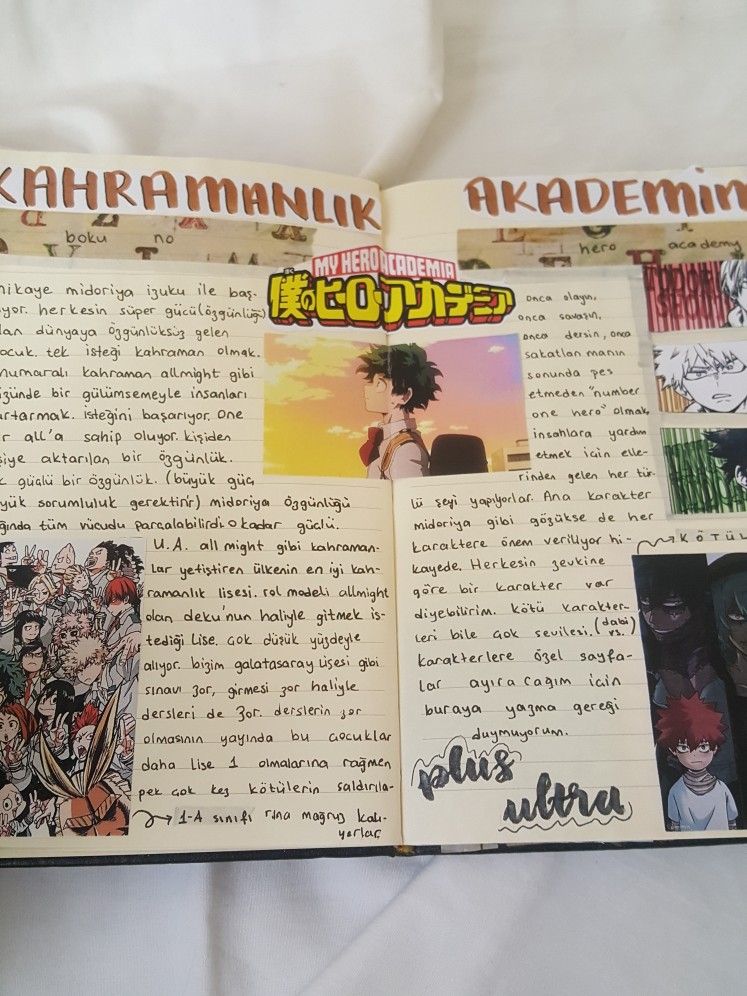 KAHRAMANLIK AKADEMİN
boku no
hero academy
MY HERO ACADEMIA
僕のヒーローアカデミア
hikaye midoriya izuku ile baş-
yor. herkesin süper gücü (özgünlüğü)
lan dünyaya özgünlüksüz gelen
ocuk. tek isteği kahraman olmak.
numaralı kahraman allmight gibi
üzünde bir gülümsemeyle insanları
urtarmak. isteğini başarıyor. One
r all'a sahip oluyor. kişiden
şiye aktarılan bir özgünlük.
k güçlü bir özgünlük. (büyük güç
yük sorumluluk gerektirir) midoriya özgünlüğü
ğında tüm vücudu parçalabilirdi o kadar güçlü.
U.A. all might gibi kahraman-
lar yetiştiren ülkenin en iyi kah-
ramanlık lisesi. rol modeli allmight
olan deku'nun haliyle gitmek is-
tediği lise. çok düşük yüzdeyle
alıyor. bizim galatasaray lisesi gibi
sınavı zor, girmesi zor haliyle
dersleri de zor. derslerin zor
olmasının yayında bu çocuklar
daha lise 1 olmalarına rağmen
pek çok kez kötülerin saldırıla-
rına magruz kalı-
yorlar
1-A sınıfı
onca olayın,
onca savaşın,
onca dersin, onca
sakatlanmanın
sonunda pes
etmeden "number
one hero" olmak,
insanlara yardım
etmek için elle-
rinden gelen her tür-
lü şeyi yapıyorlar. Ana karakter
midoriya gibi gözükse de her
karaktere önem veriliyor hi-
kayede. Herkesin zevkine
göre bir karakter var
diyebilirim. kötü karakter-
leri bile çok sevilesi. (dabi vs.)
karakterlere özel sayfa-
lar ayıracağım için
buraya yazma gereği
duymuyorum.
plus
ultra
KÖTÜL